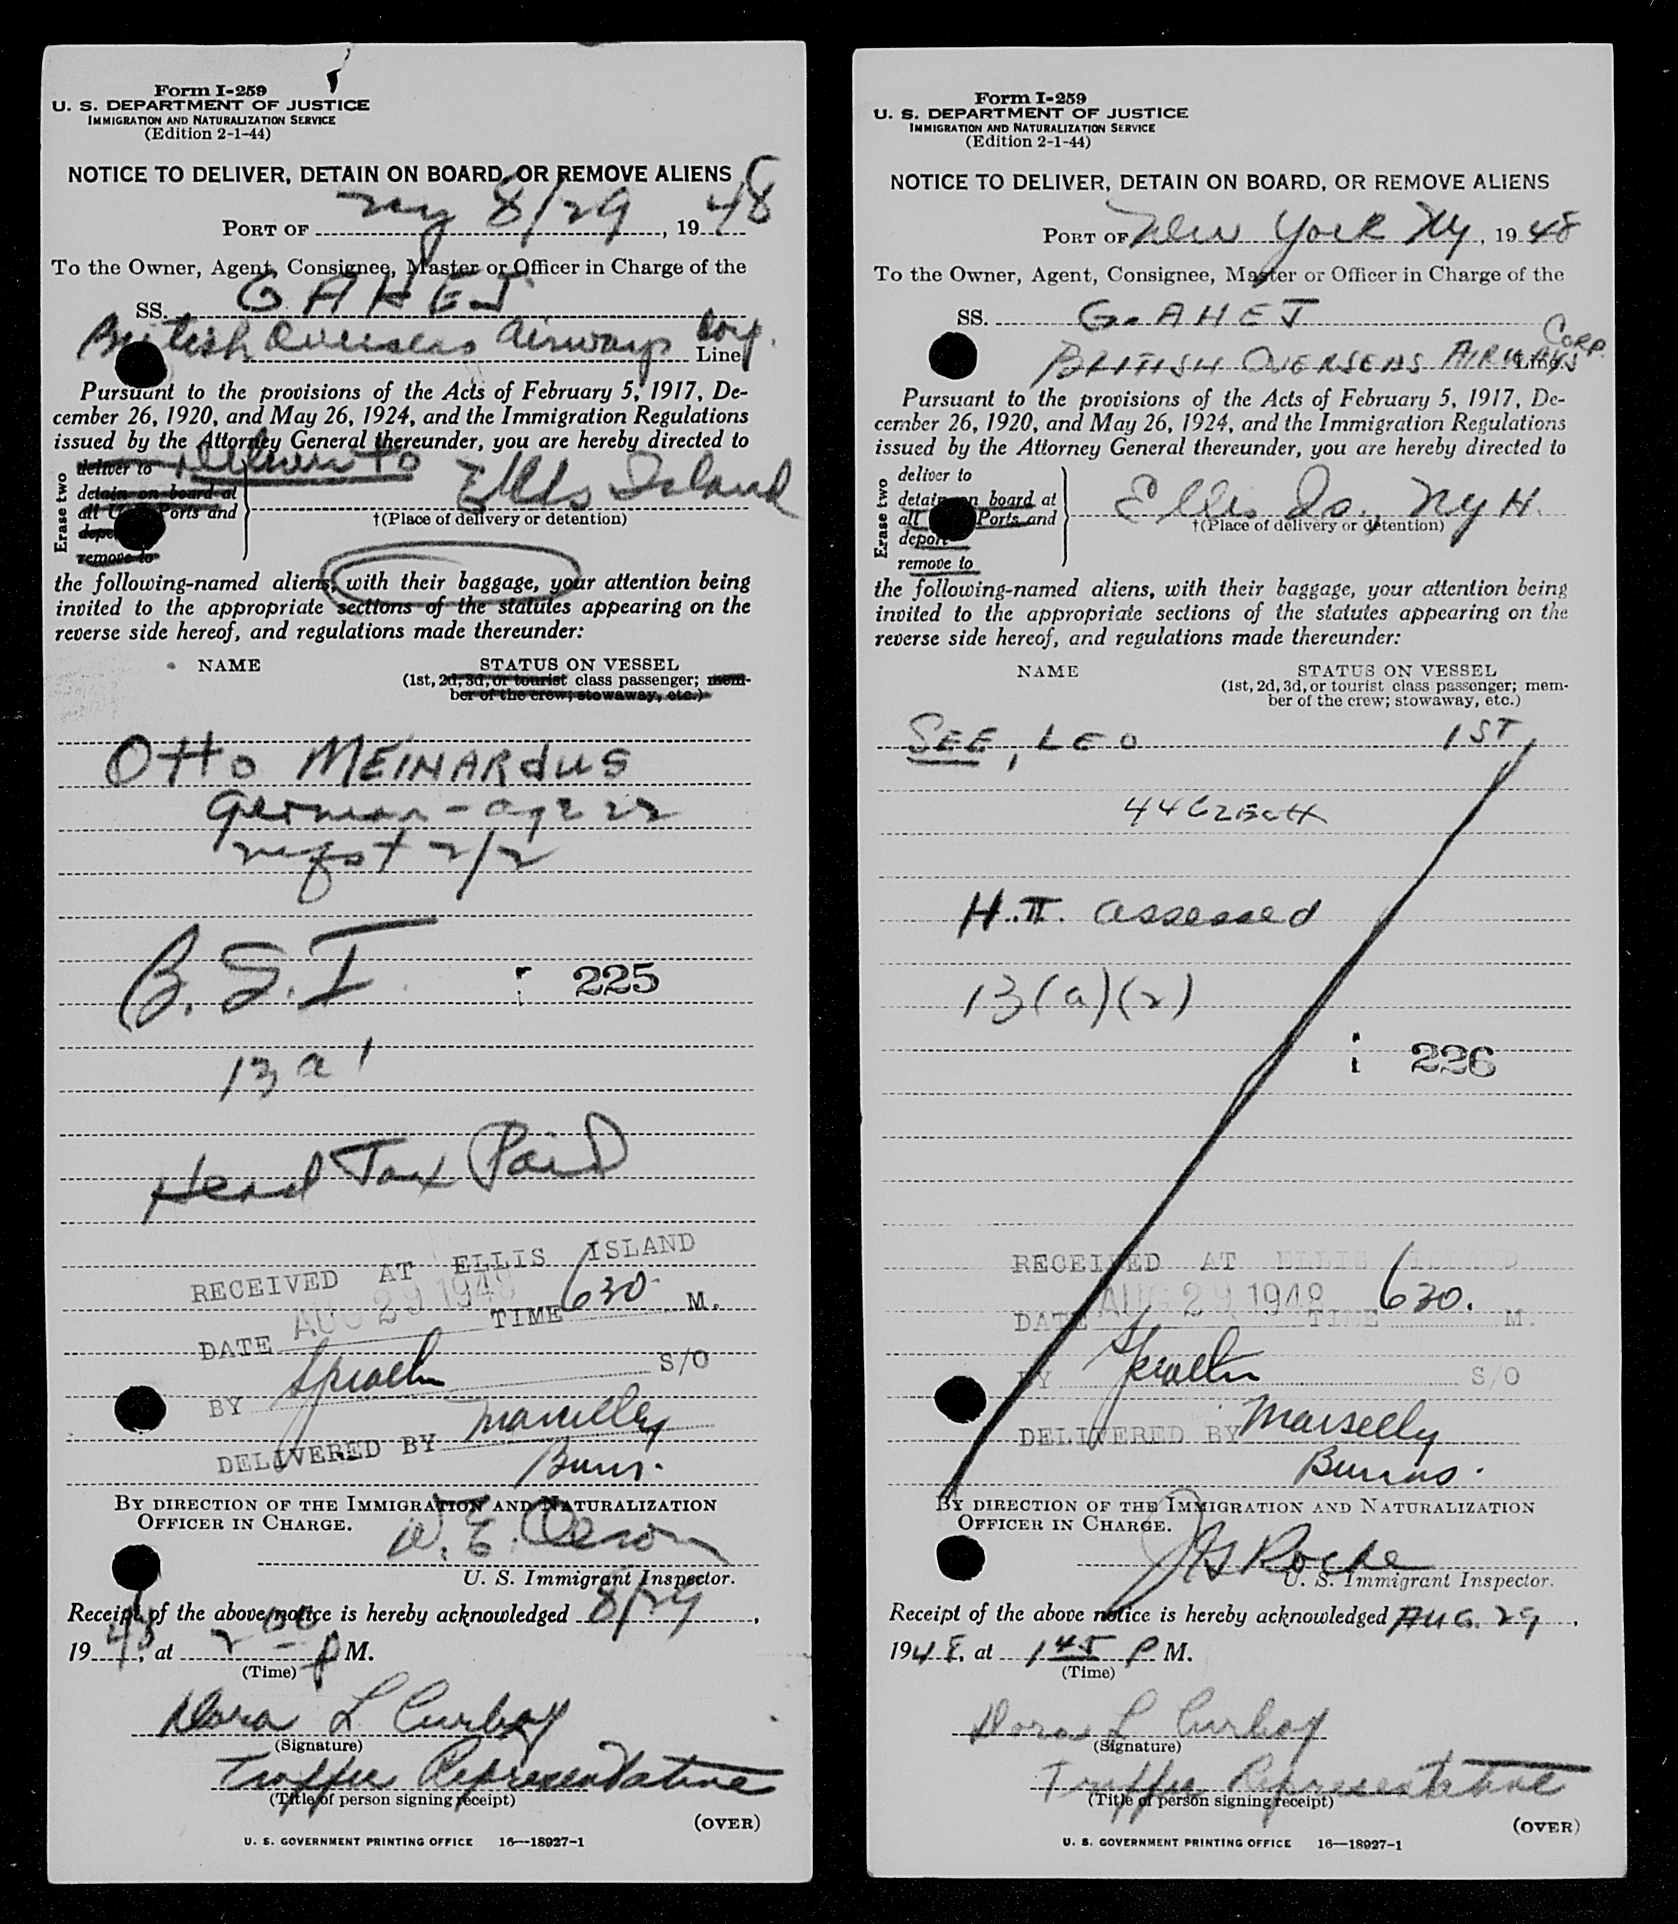 Form I-259
U. S. DEPARTMENT OF JUSTICE
IMMIGRATION AND NATURALIZATION SERVICE
(Edition 2-1-44)
NOTICE TO DELIVER, DETAIN ON BOARD, OR REMOVE ALIENS
PORT OF NY 8/29, 1948
To the Owner, Agent, Consignee, Master or Officer in Charge of the
SS. G AHEJ
British Overseas Airways Corp. Line
Pursuant to the provisions of the Acts of February 5, 1917, De-
cember 26, 1920, and May 26, 1924, and the Immigration Regulations
issued by the Attorney General thereunder, you are hereby directed to
Erase two
deliver to deliver to
detain on board at Ellis Island
all U Ports and †(Place of delivery or detention)
remove to
the following-named aliens, with their baggage, your attention being
invited to the appropriate sections of the statutes appearing on the
reverse side hereof, and regulations made thereunder:
NAME STATUS ON VESSEL
(1st, 2d, 3d, or tourist class passenger; mem-
ber of the crew; stowaway, etc.)
Otto MEINARdUS
German - age 22
mfst 2/2
B.S.I
225
13 a 1
Head Tax Paid
RECEIVED AT ELLIS ISLAND
DATE AUG 29 1948 TIME 630 M.
BY S/O
DELIVERED BY
BY DIRECTION OF THE IMMIGRATION AND NATURALIZATION
OFFICER IN CHARGE.
U. S. Immigrant Inspector.
Receipt of the above notice is hereby acknowledged 8/29,
1948, at 2 00 P M.
(Time)
Dora L Curhoy
(Signature)
Traffic Representative
(Title of person signing receipt)
(OVER)
U. S. GOVERNMENT PRINTING OFFICE 16—18927-1
Form I-259
U. S. DEPARTMENT OF JUSTICE
IMMIGRATION AND NATURALIZATION SERVICE
(Edition 2-1-44)
NOTICE TO DELIVER, DETAIN ON BOARD, OR REMOVE ALIENS
PORT OF New York NY, 1948
To the Owner, Agent, Consignee, Master or Officer in Charge of the
SS. G. AHEJ
BRITISH OVERSEAS AIRWAYS CORP. Line
Pursuant to the provisions of the Acts of February 5, 1917, De-
cember 26, 1920, and May 26, 1924, and the Immigration Regulations
issued by the Attorney General thereunder, you are hereby directed to
Erase two
deliver to
detain on board at Ellis Is., NyH.
all Ports and †(Place of delivery or detention)
deport
remove to
the following-named aliens, with their baggage, your attention being
invited to the appropriate sections of the statutes appearing on the
reverse side hereof, and regulations made thereunder:
NAME STATUS ON VESSEL
(1st, 2d, 3d, or tourist class passenger; mem-
ber of the crew; stowaway, etc.)
SEE, LEO 1ST
44 CZECH
H.T. assessed
13(a)(2)
226
RECEIVED AT ELLIS ISLAND
DATE AUG 29 1948 TIME 630. M.
BY S/O
DELIVERED BY Marselly
Burns.
BY DIRECTION OF THE IMMIGRATION AND NATURALIZATION
OFFICER IN CHARGE.
Roche
U. S. Immigrant Inspector.
Receipt of the above notice is hereby acknowledged AUG. 29,
1948, at 1 45 P M.
(Time)
Dora L Curhoy
(Signature)
Traffic Representative
(Title of person signing receipt)
(OVER)
U. S. GOVERNMENT PRINTING OFFICE 16—18927-1